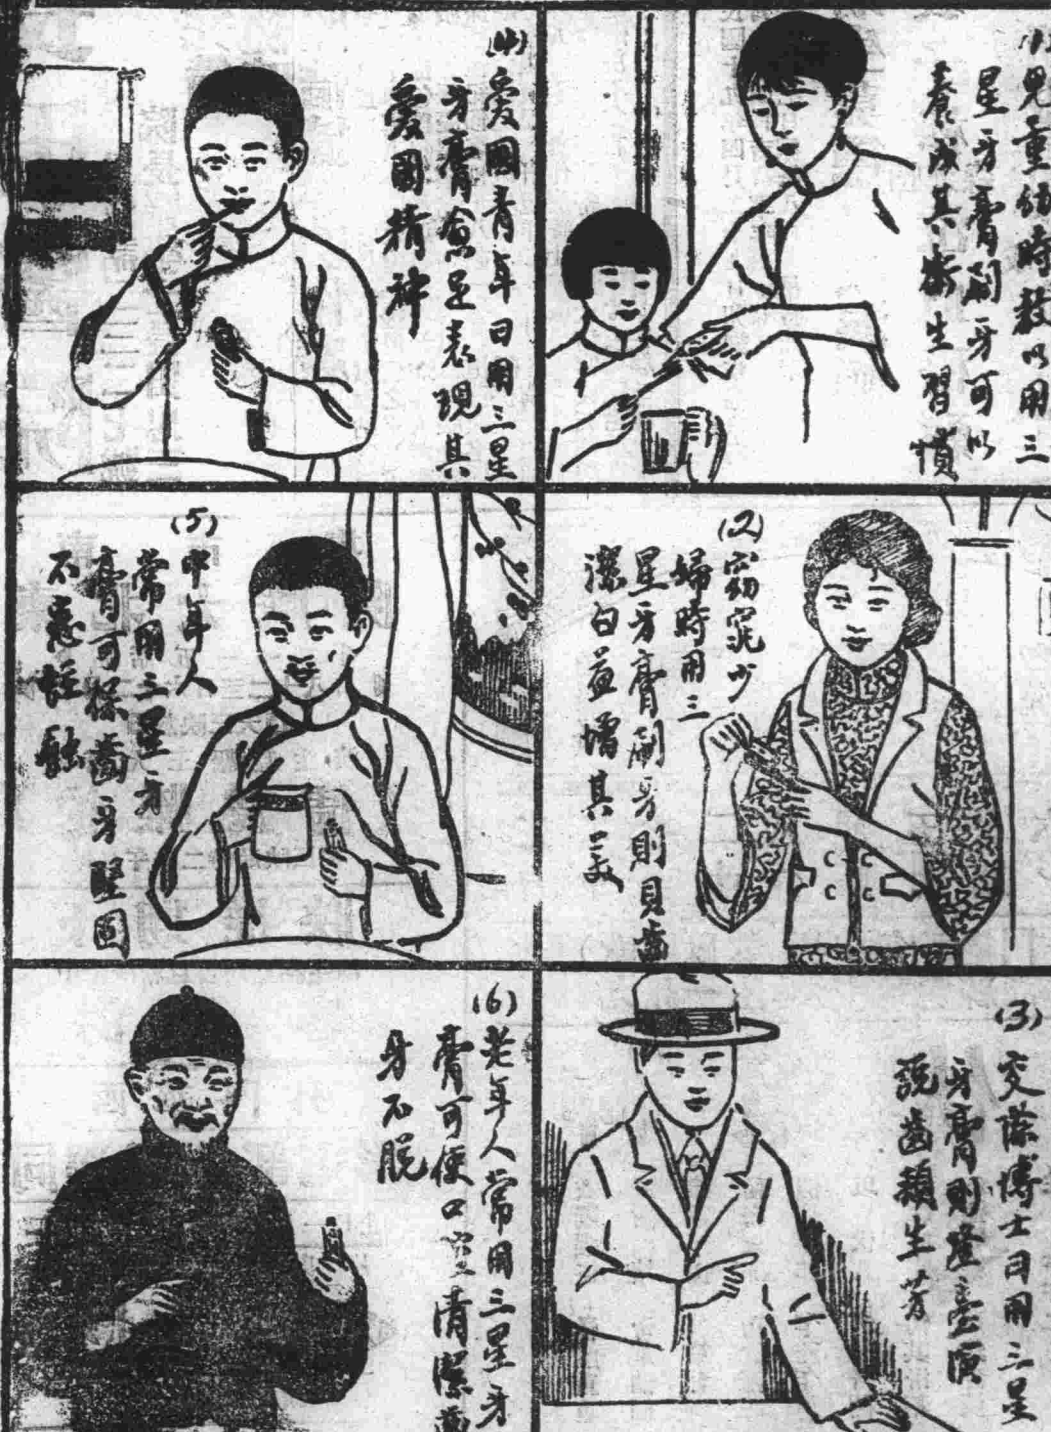 (1)兒童幼時教以用三
星牙膏刷牙可以
養成其衛生習慣
(2)窈窕少
婦時用三
星牙膏刷牙則見齒
潔白益增其美
(3)交際博士日用三星
牙膏則登臺演
說齒頰生芳
(4)愛國青年日用三星
牙膏愈足表現其
愛國精神
(5)中年人
常用三星牙
膏可保齒牙堅固
不患蛀蝕
(6)老年人常用三星牙
膏可使口空清潔齒
牙不脫